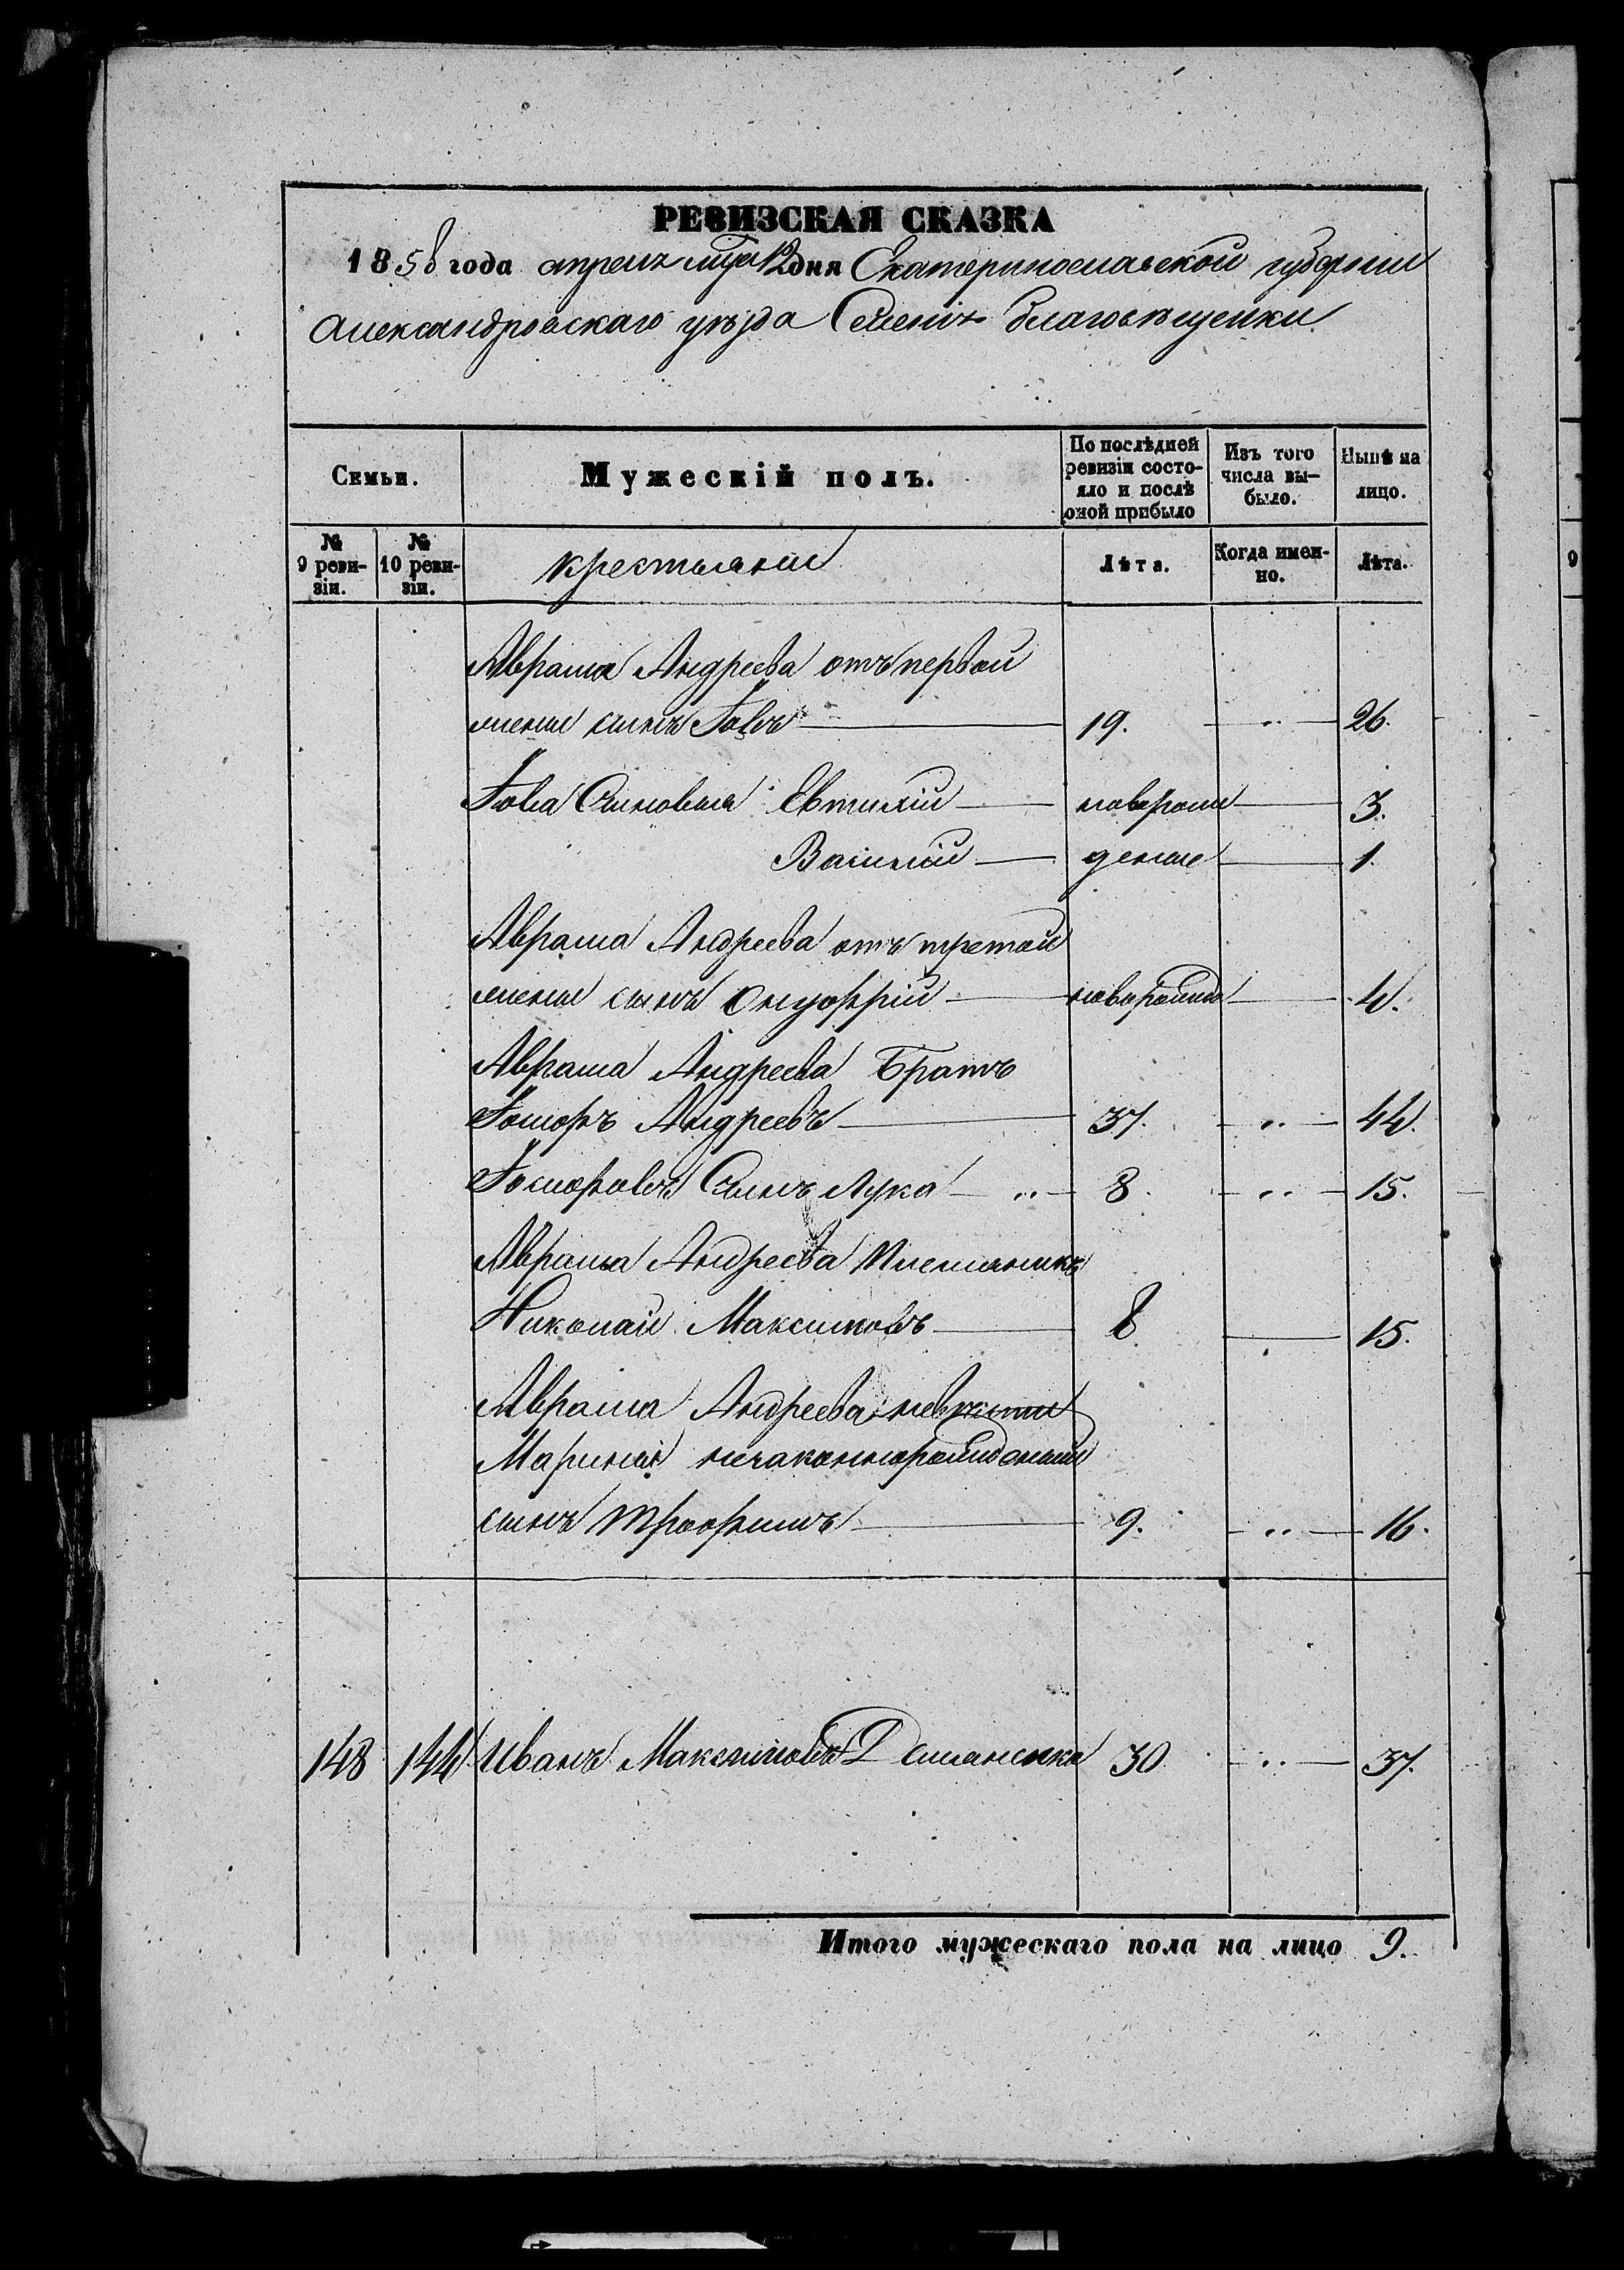 РЕВИЗСКАЯ СКАЗКА
1858 года апреля мца 12 дня Екатеринославской губернии
Александровскаго уезда Селенія благовещенки
Семьи. Мужескій полъ. По послѣдней ревизіи состояло и послѣ оной прибыло Изъ того числа выбыло. Нынѣ на лицо.
№ 9 ревизіи. № 10 ревизіи. крестьяни Лѣта. Когда именно. Лѣта.
Аврама Андреева отъ первой
жены сынъ Іовъ 19. " 26.
Іова Сыновья Евтихій новорож 3.
Василій деные 1.
Аврама Андреева отъ третей
жены сынъ Онуфрій новорожд 4.
Аврама Андреева Братъ
Андреевъ 37. " 44.
Сынъ Лука " 8. " 15.
Аврама Андреева Племянникъ
Николай Максимовъ 8 15.
Аврама Андреева невестки
Марины незаконнорожденный
сынъ Трофимъ 9. " 16.
148 144 Иванъ Максимовъ Демяненко 30. " 37.
Итого мужескаго пола на лицо 9.